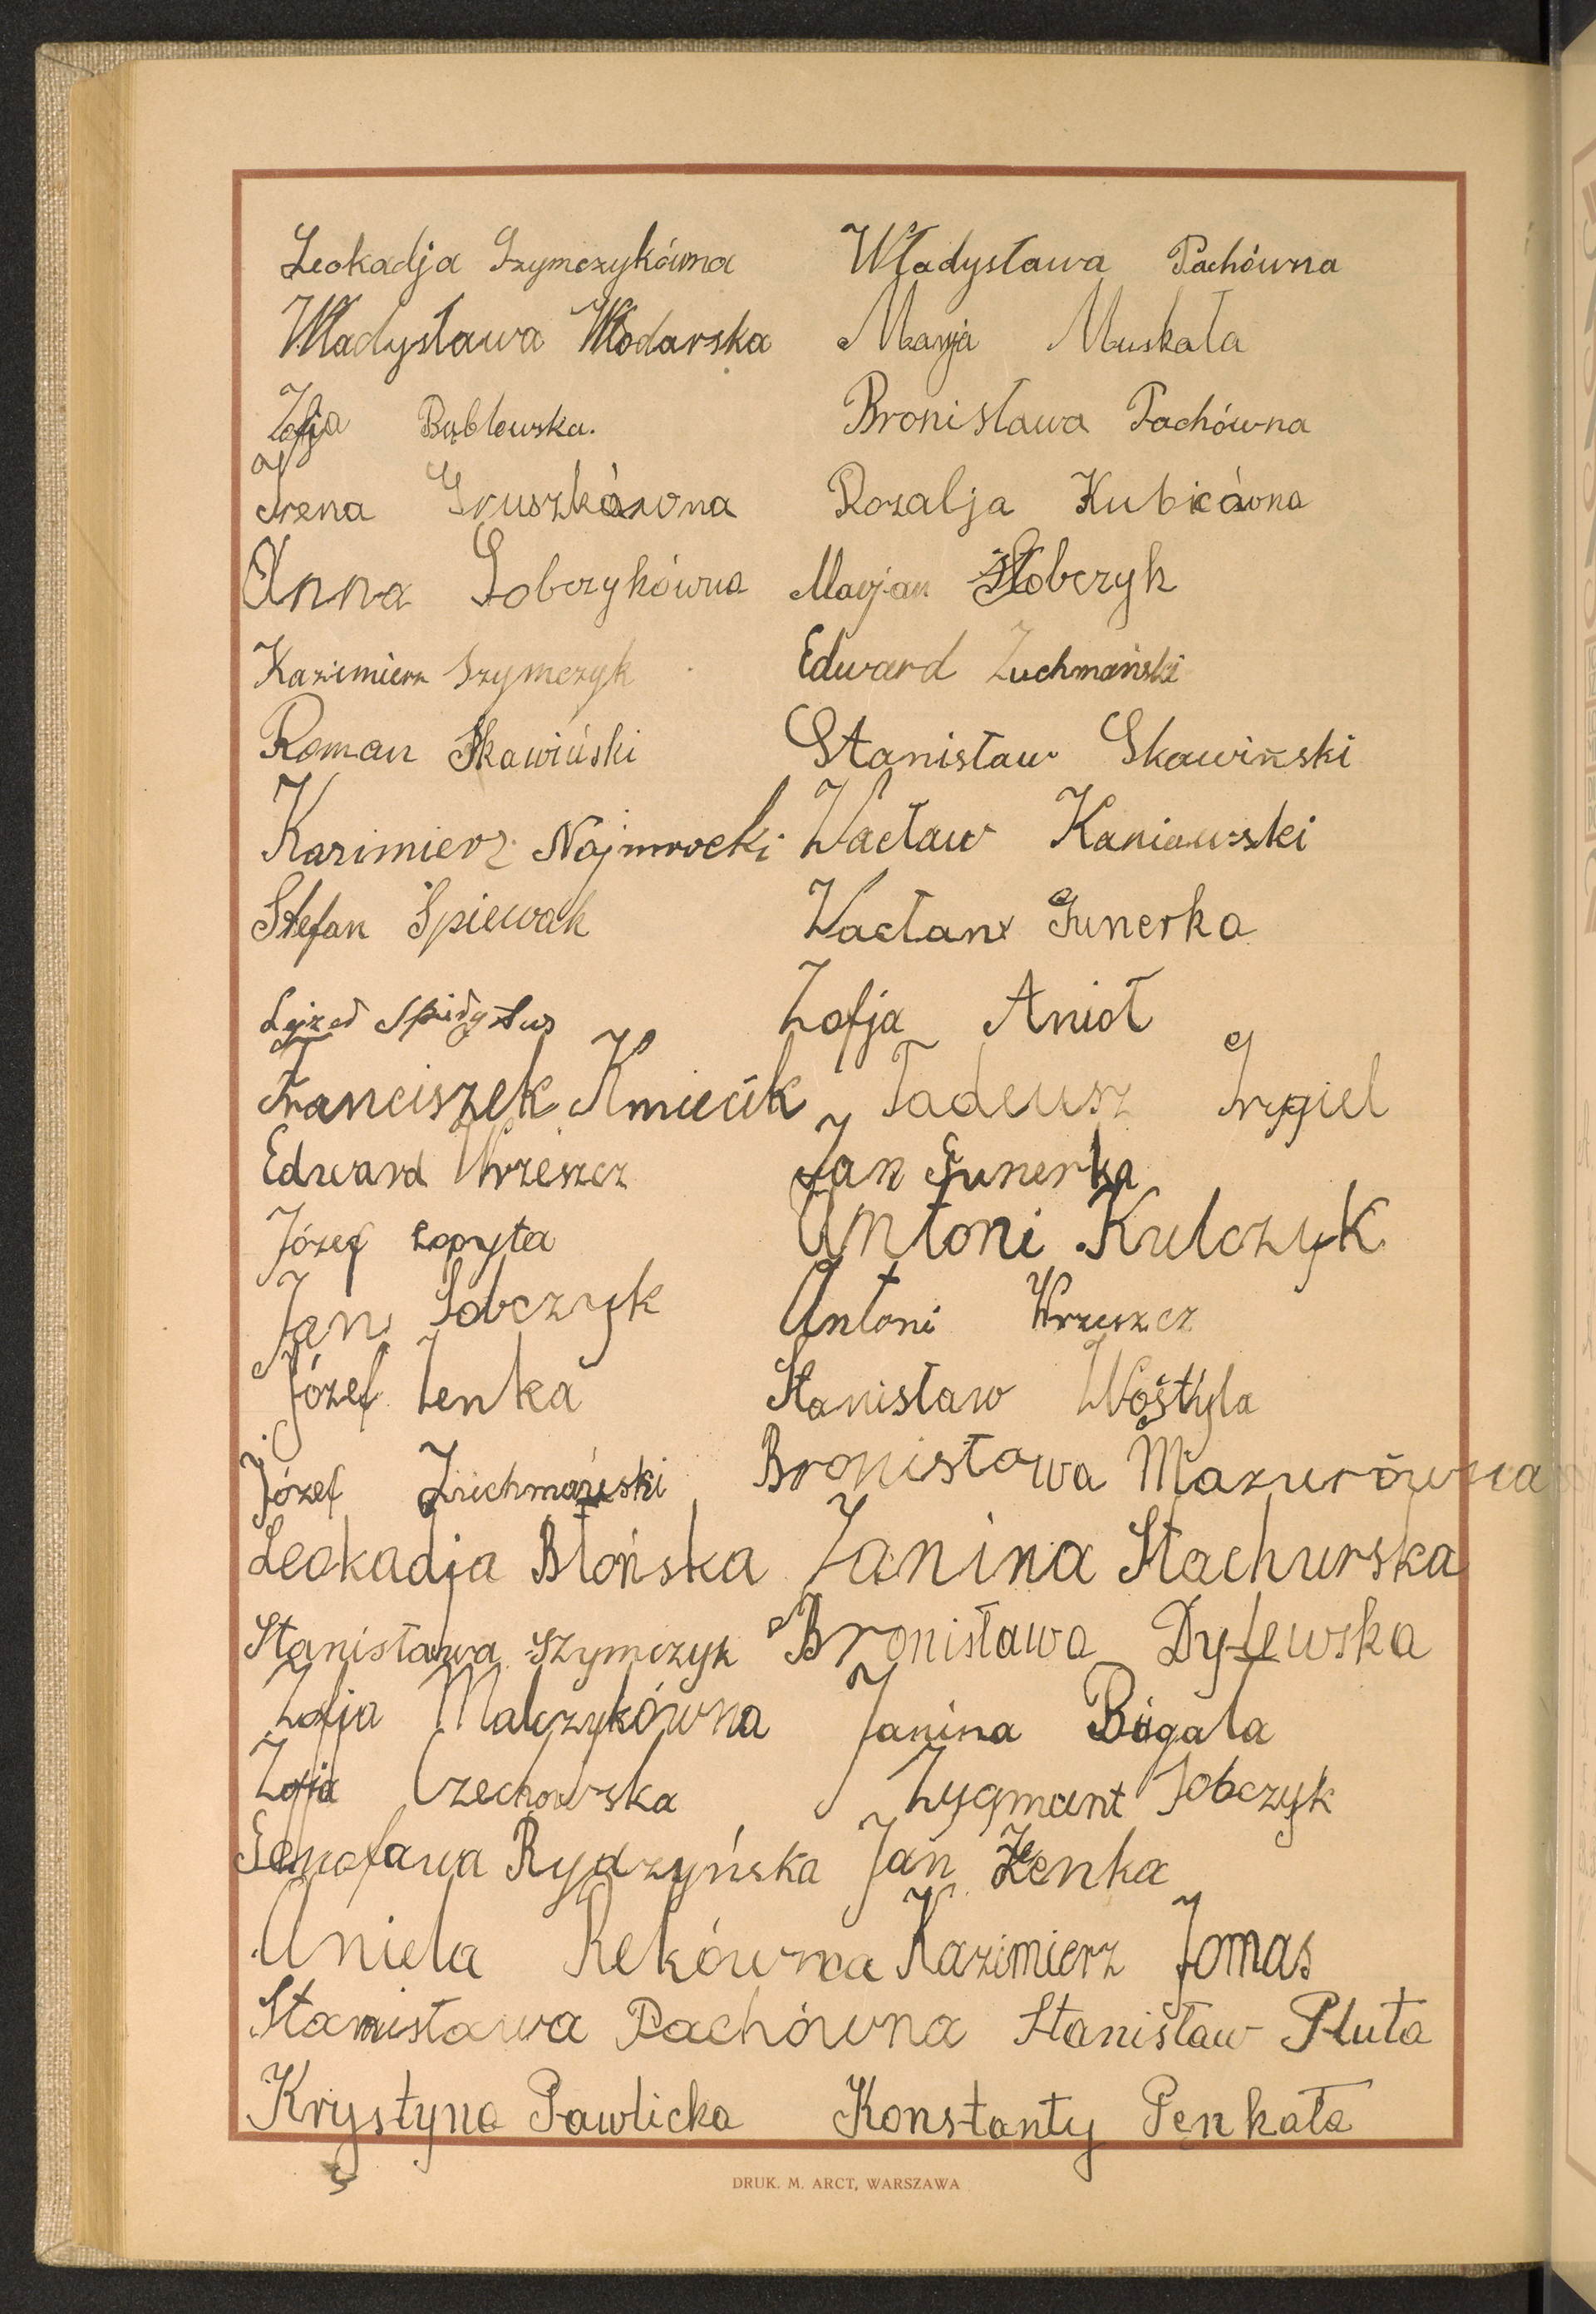 Leokadja Szymczykówna Władysława Pachówna
Władysława Włodarska Marja Muskała
Zofja Bąblewska. Bronisława Pachówna
Irena Gruszkówna Rozalja Kubicówna
Anna Sobczykówna Marjan Sobczyk
Kazimierz Szymczyk Edward Zuchmański
Roman Skawiński Stanisław Skawiński
Kazimierz Najmrocki Wacław Kaniewski
Stefan Śpiewak Wacław Gunerka
Zofja Anioł
Franciszek Kmiecik Tadeusz
Edward Wrzeszcz Jan Gunerka
Józef Łopyta Antoni Kulczyk
Jan Sobczyk Antoni Wrzeszcz
Józef Zenka Stanisław
Józef Zuchmański Bronisława Mazurówna
Leokadja Błońska Janina Stachurska
Stanisława Szymczyk Bronisława Dylewska
Zofja Malczykówna Janina Bigała
Zofja Czechowska Zygmunt Sobczyk
Rydzyńska Jan Zenka
Aniela Rekówna Kazimierz Jomas
Stanisława Pachówna Stanisław Pluta
Krystyna Pawlicka Konstanty Penkała
DRUK. M. ARCT, WARSZAWA